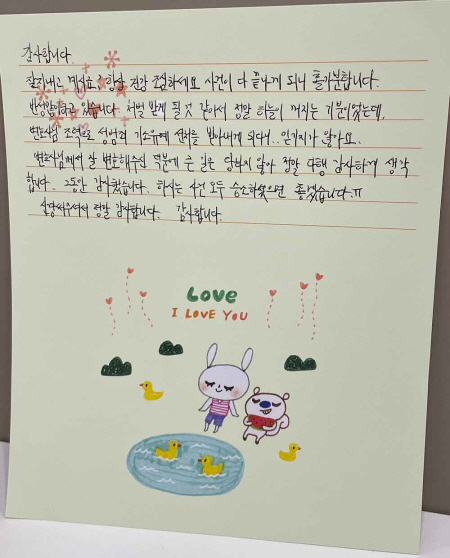 감사합니다.
잘지내고 계시죠? 항상 건강 조심하세요 사건이 다 끝나게 되니 홀가분합니다.
반성많이하고 있습니다. 처벌 받게 될것 같아서 정말 하늘이 꺼지는 기분이었는데,
변호사님 조력으로 성범죄 기소유예 선처를 받아내게 되다니.. 믿기지가 않아요.
변호사님께서 잘 변호해주신 덕분에 큰 일은 당하지 않아 정말 다행 감사하게 생각
합니다. 그동안 감사했습니다. 하시는 사건 모두 승소하셨으면 좋겠습니다.ㅠ
신경써주셔서 정말 감사합니다. 감사합니다.
Love
I LOVE YOU